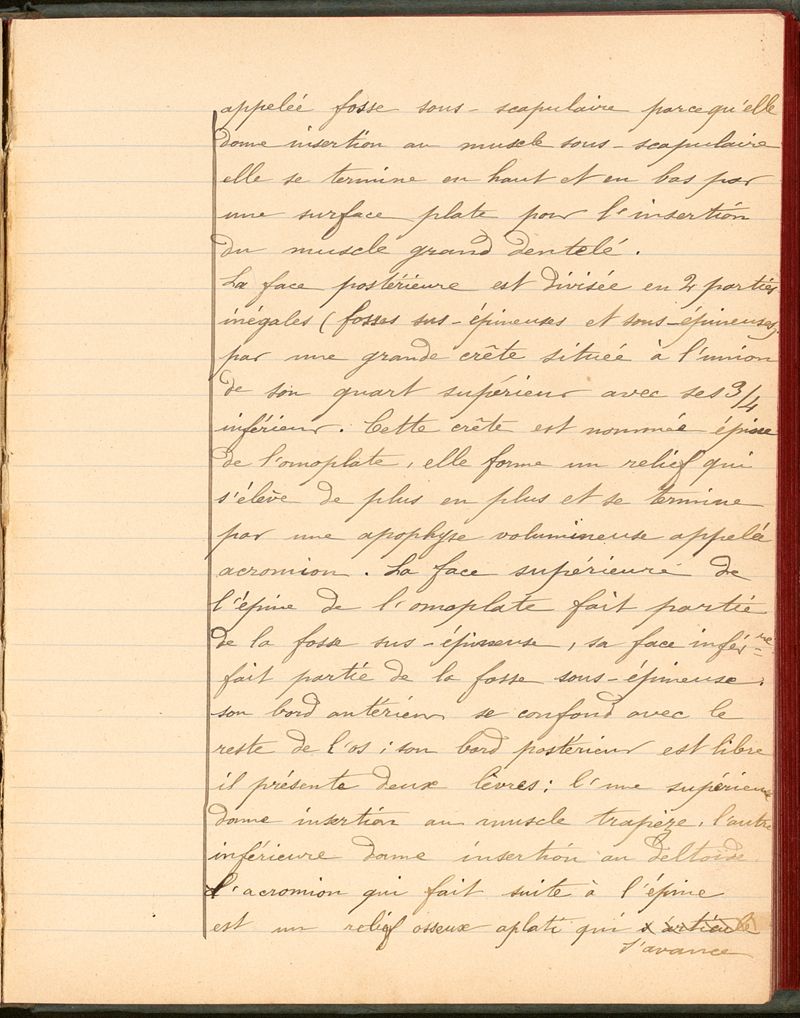 appelée fosse sous-scapulaire parcequ'elle
donne insertion au muscle sous-scapulaire
elle se termine en haut et en bas par
une surface plate pour l'insertion
du muscle grand dentelé.
La face postérieure est divisée en 2 parties
inégales (fosses sus-épineuses et sous-épineuses).
par une grande crête située à l'union
de son quart supérieur avec ses 3/4
inférieur. Cette crête est nommée épine
de l'omoplate, elle forme un relief qui
s'élève de plus en plus et se termine
par une apophyse volumineuse appelée
acromion. La face supérieure de
l'épine de l'omoplate fait partie
de la fosse sus-épineuse, sa face infér-re
fait partie de la fosse sous-épineuse.
son bord antérieur se confond avec le
reste de l'os; son bord postérieur est libre
il présente deux lèvres: l'une supérieure
donne insertion au muscle trapèze, l'autre
inférieure donne insertion au deltoïde
l'acromion qui fait suite à l'épine
est un relief osseux aplati qui s'articule
s'avance